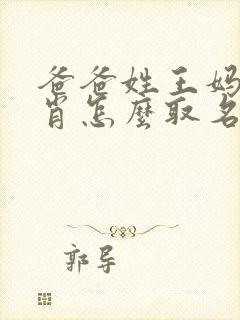 爸爸姓王妈
肖怎麼取名
郭导